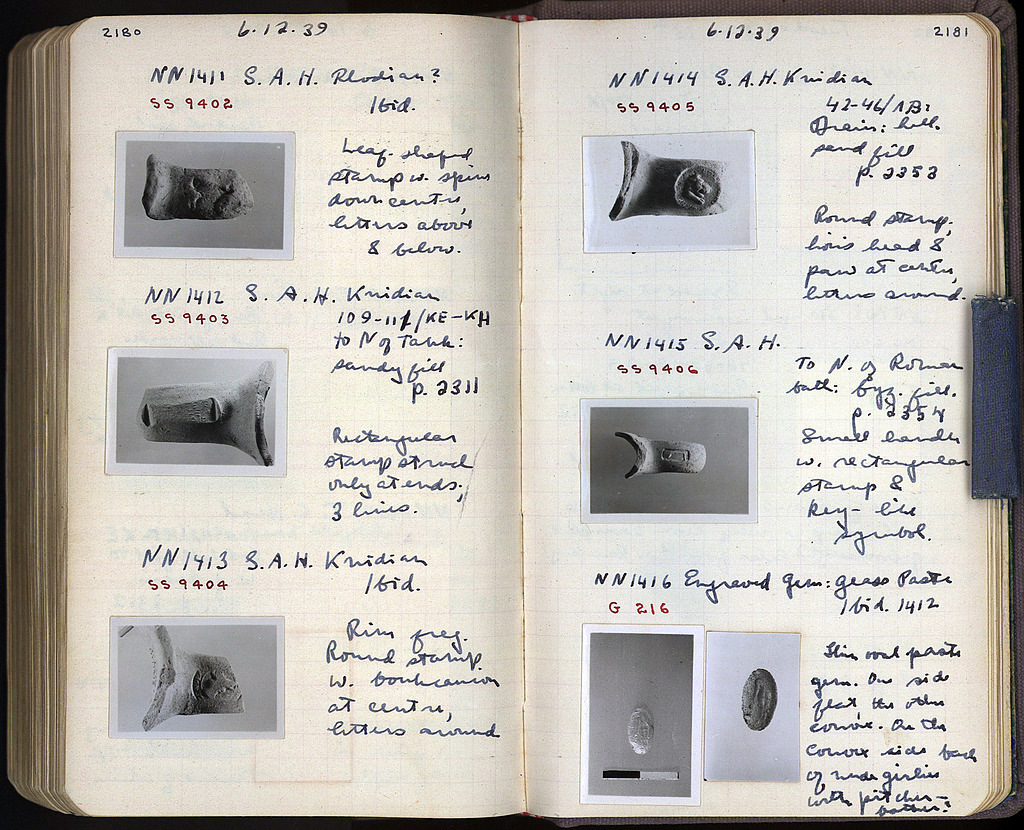 2180
6.12.39
NN1411 S.A.H. Rhodian?
SS 9402
Ibid.
Leaf-shaped
stamp w. spine
down centre,
letters above
& below.
NN1412 S.A.H. Knidian
SS 9403
109-111/KE-KH
to N of Tank:
sandy fill
p. 2311
Rectangular
stamp struck
only at ends,
3 lines.
NN1413 S.A.H. Knidian
SS 9404
Ibid.
Rim frag.
Round stamp
w. boukranion
at centre,
letters around
6.12.39
2181
NN1414 S.A.H. Knidian
SS 9405
42-46/ΛB:
Drain:
sand fill
p. 2353
Round stamp,
lion's head &
paw at centre,
letters around.
NN1415 S.A.H.
SS 9406
To N. of Roman
bath: Byz. fill.
p. 2354
Small handle
w. rectangular
stamp &
key-like
symbol.
NN1416 Engraved gem: glass Paste
G 216
Ibid. 1412
Thin oval paste
gem. One side
flat the other
convex. On the
convex side back
of nude girlie
with pitcher-